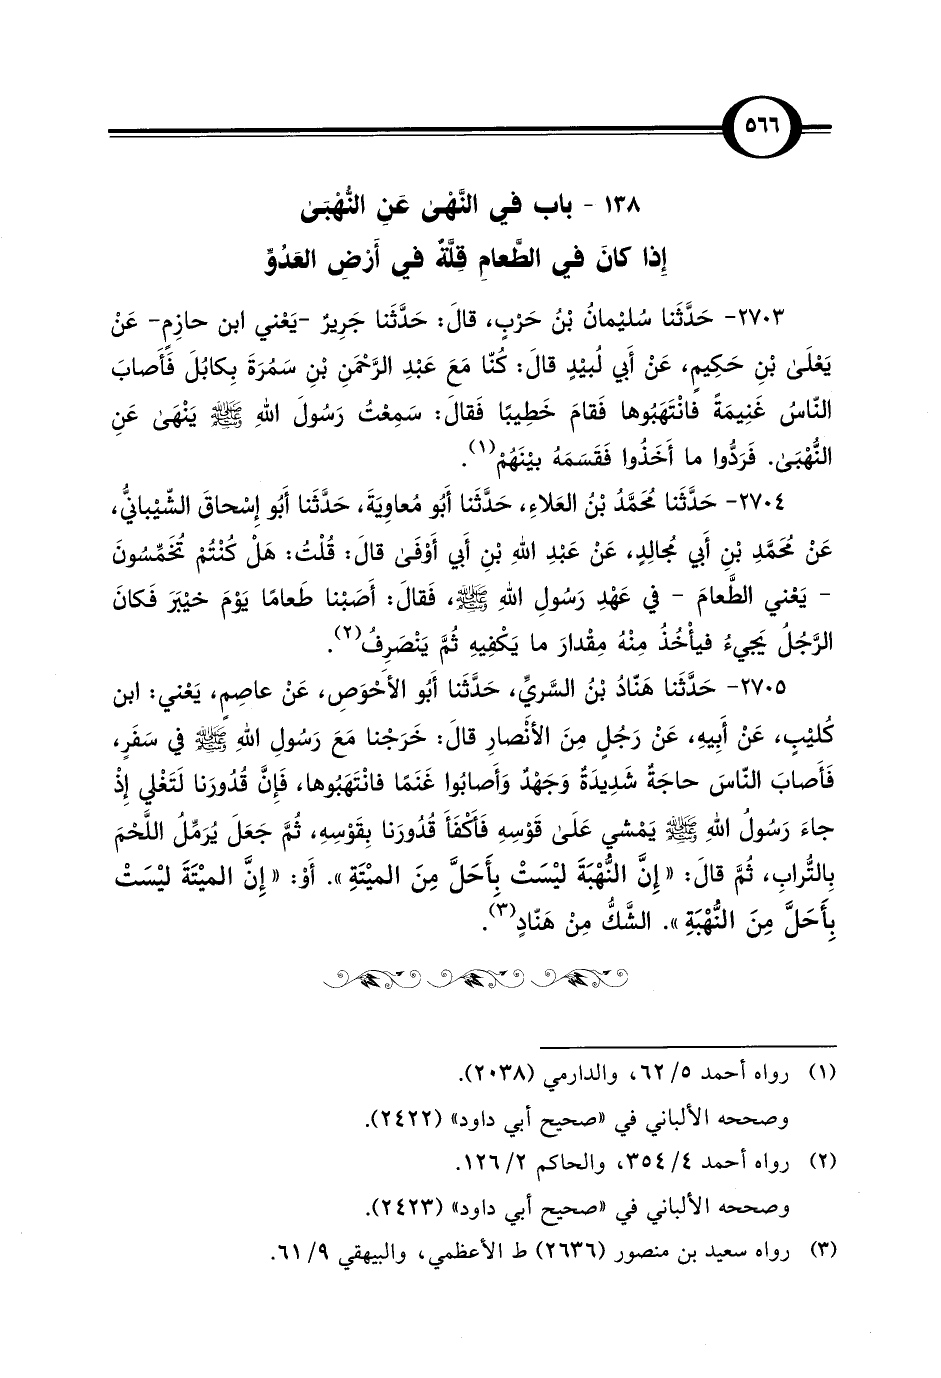 ٥٦٦
١٣٨ - باب في النَّهْىٰ عَنِ النُّهْبَىٰ
إِذا كانَ في الطَّعامِ قِلَّةٌ في أَرْضِ العَدُوِّ
٢٧٠٣- حَدَّثَنا سُليْمانُ بْنُ حَرْبٍ، قالَ: حَدَّثَنا جَرِيرٌ -يَعْني ابن حازِمٍ- عَنْ
يَعْلَىٰ بْنِ حَكِيمٍ، عَنْ أَبي لُبيْدٍ قالَ: كُنّا مَعَ عَبْدِ الرَّحْمَنِ بْنِ سَمُرَةَ بِكابُلَ فَأَصابَ
النّاسُ غَنِيمَةً فانْتَهَبُوها فَقامَ خَطِيبًا فَقالَ: سَمِعْتُ رَسُولَ اللهِ ﷺ يَنْهَىٰ عَنِ
النُّهْبَىٰ. فَرَدُّوا ما أَخَذُوا فَقَسَمَهُ بيْنَهُمْ(١).
٢٧٠٤- حَدَّثَنا مُحَمَّدُ بْنُ العَلاءِ، حَدَّثَنا أَبُو مُعاوِيَةَ، حَدَّثَنا أَبُو إِسْحاقَ الشّيْبانيُّ،
عَنْ مُحَمَّدِ بْنِ أَبي مُجالِدٍ، عَنْ عَبْدِ اللهِ بْنِ أَبي أَوْفَىٰ قالَ: قُلْتُ: هَلْ كُنْتُمْ تُخَمِّسُونَ
- يَعْني الطَّعامَ - في عَهْدِ رَسُولِ اللهِ ﷺ، فَقالَ: أَصَبْنا طَعامًا يَوْمَ خيْبَرَ فَكانَ
الرَّجُلُ يَجِيءُ فيأْخُذُ مِنْهُ مِقْدارَ ما يَكْفِيهِ ثُمَّ يَنْصَرِفُ(٢).
٢٧٠٥- حَدَّثَنا هَنّادُ بْنُ السَّريِّ، حَدَّثَنا أَبُو الأَحْوَصِ، عَنْ عاصِمٍ، يَعْني: ابن
كُليْبٍ، عَنْ أَبِيهِ، عَنْ رَجُلٍ مِنَ الأَنْصارِ قالَ: خَرَجْنا مَعَ رَسُولِ اللهِ ﷺ في سَفَرٍ،
فَأَصابَ النّاسَ حاجَةٌ شَدِيدَةٌ وَجَهْدٌ وَأَصابُوا غَنَمًا فانْتَهَبُوها، فَإِنَّ قُدُورَنا لَتَغْلي إِذْ
جاءَ رَسُولُ اللهِ ﷺ يَمْشي عَلَىٰ قَوْسِهِ فَأَكْفَأَ قُدُورَنا بِقَوْسِهِ، ثُمَّ جَعَلَ يُرَمِّلُ اللَّحْمَ
بِالتُّرابِ، ثُمَّ قالَ: « إِنَّ النُّهْبَةَ ليْسَتْ بِأَحَلَّ مِنَ الميْتَةِ ». أَوْ: « إِنَّ الميْتَةَ ليْسَتْ
بِأَحَلَّ مِنَ النُّهْبَةِ ». الشَّكُّ مِنْ هَنّادٍ(٣).
(١) رواه أحمد ٥/ ٦٢، والدارمي (٢٠٣٨).
وصححه الألباني في «صحيح أبي داود» (٢٤٢٢).
(٢) رواه أحمد ٤/ ٣٥٤، والحاكم ٢/ ١٢٦.
وصححه الألباني في «صحيح أبي داود» (٢٤٢٣).
(٣) رواه سعيد بن منصور (٢٦٣٦) ط الأعظمي، والبيهقي ٩/ ٦١.